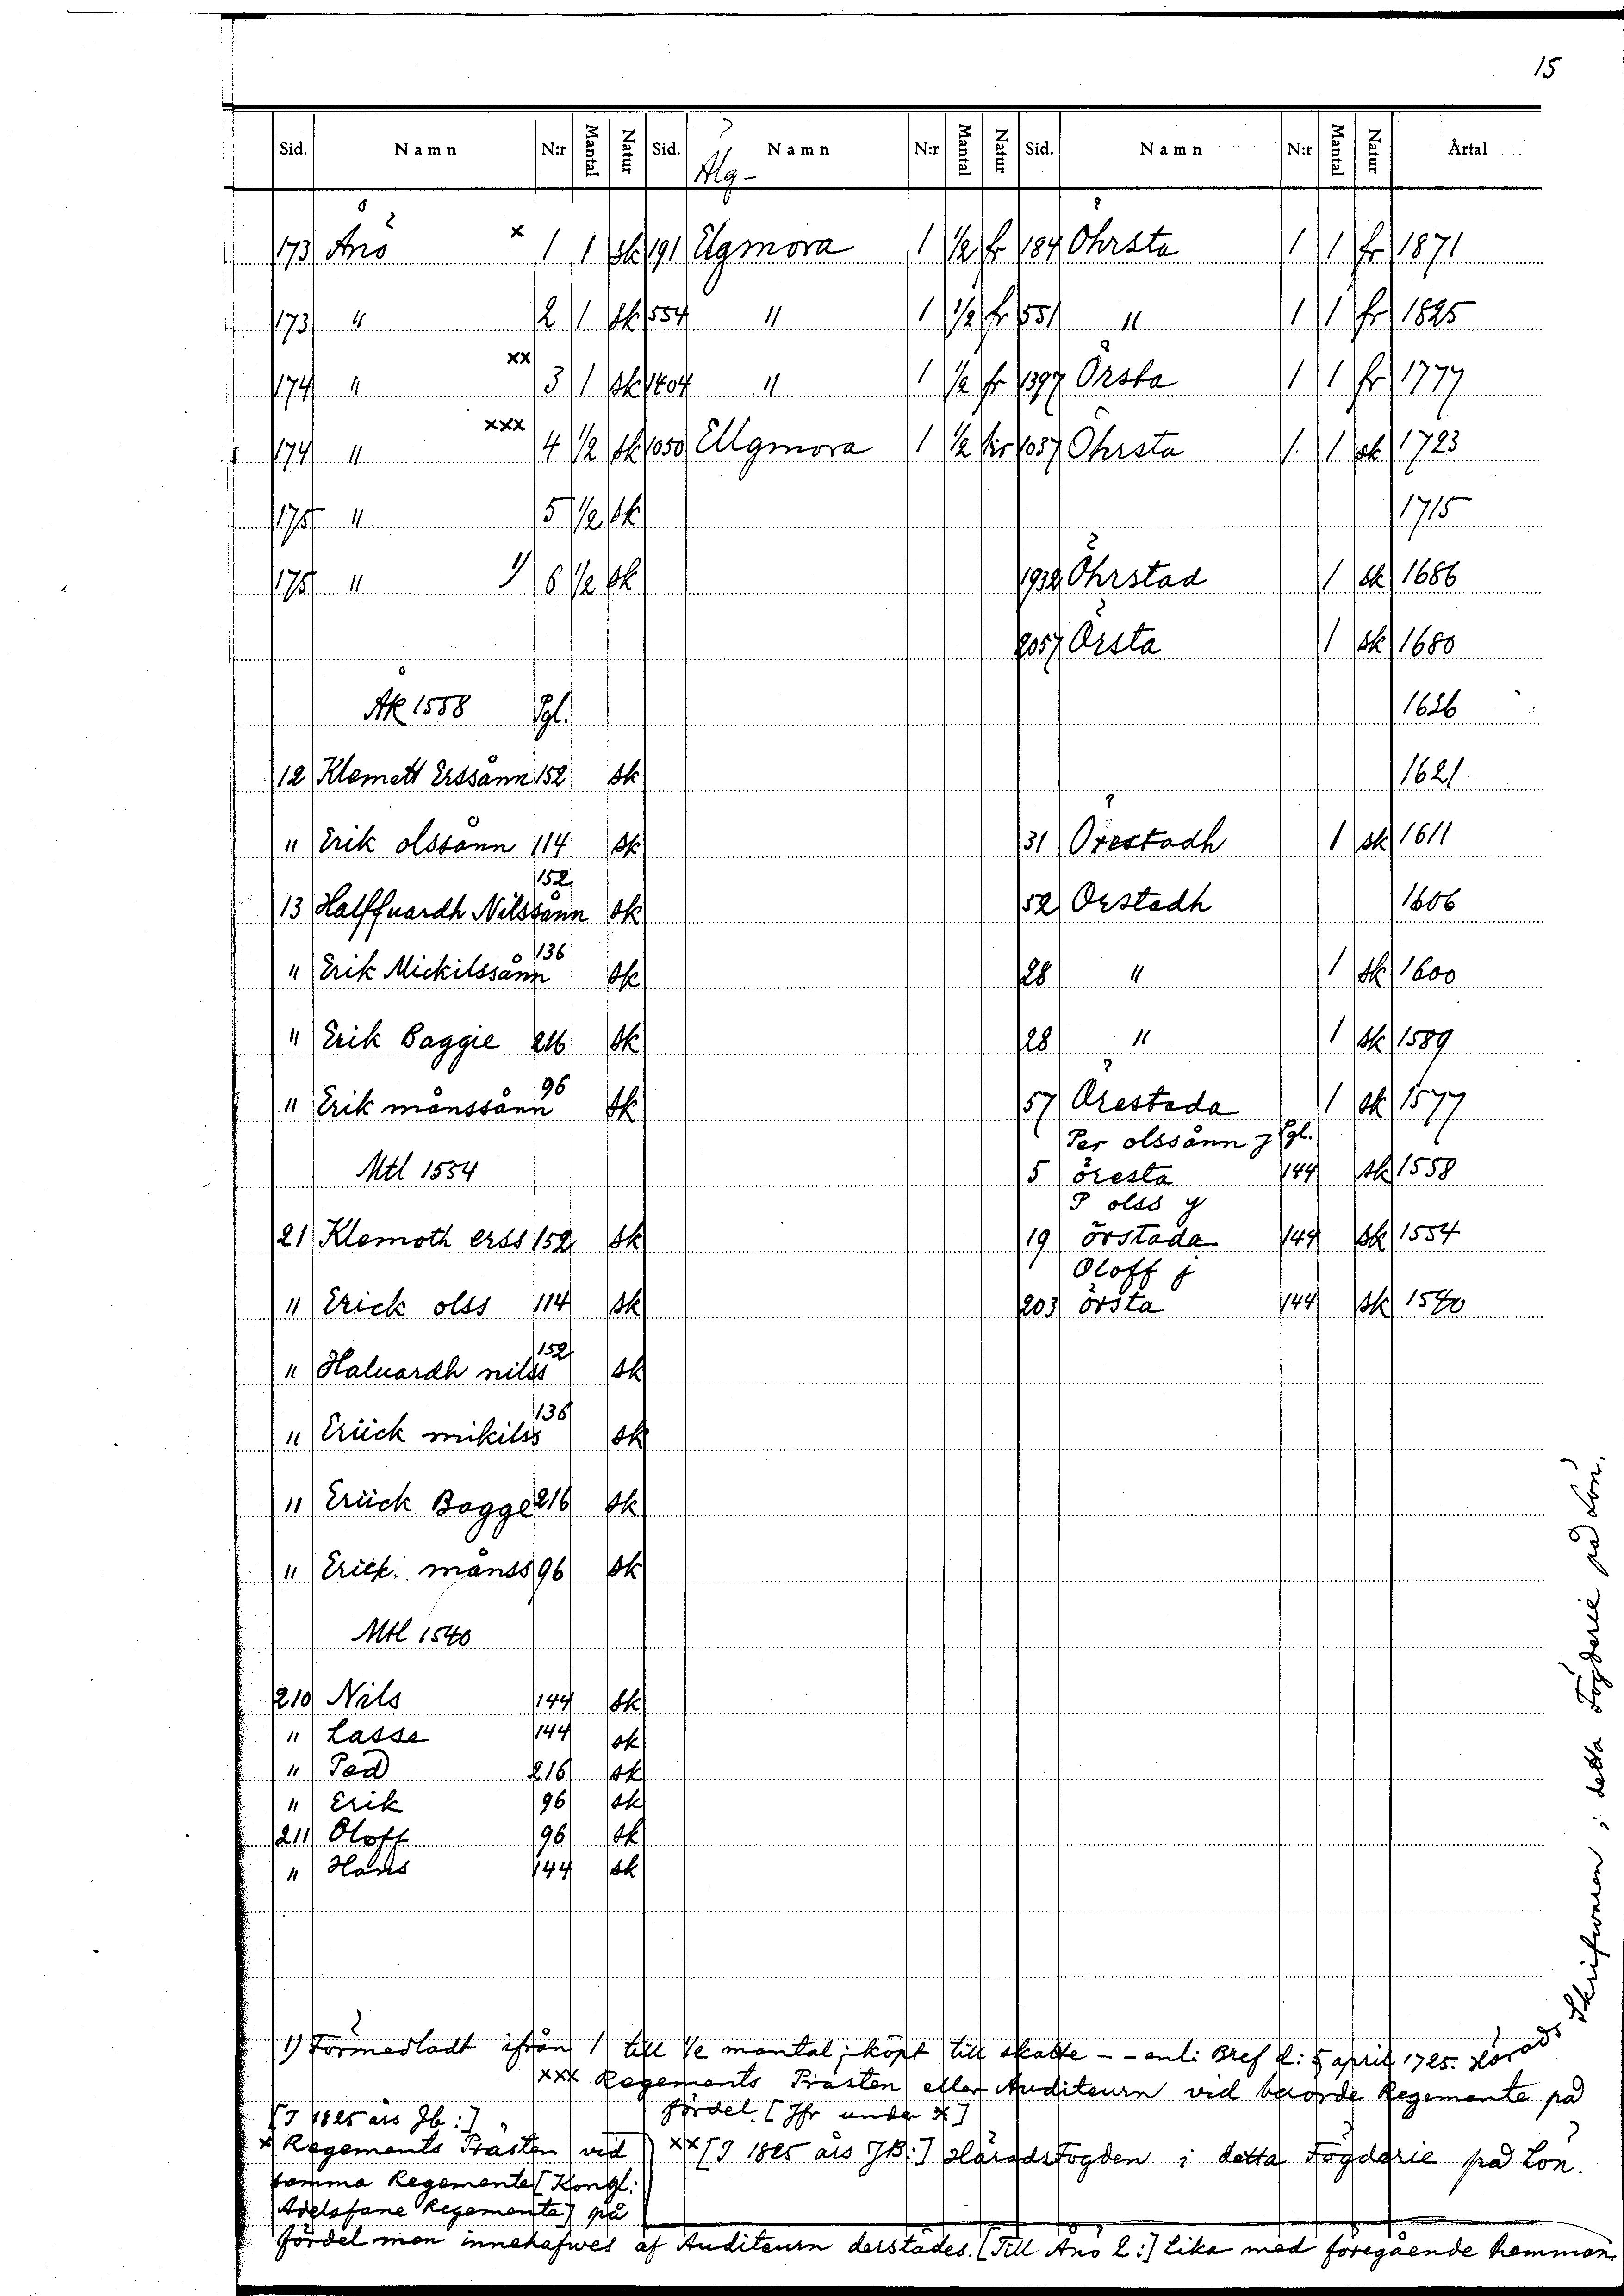 15
Sid. Namn N:r Mantal Natur Sid. Namn N:r Mantal Natur Sid. Namn N:r Mantal Natur Årtal
Älg-
173 Ånö x 1 1 sk 191 Elgmora 1 1/2 fr 184 Öhrsta 1 1 fr 1871
173 " 2 1 sk 554 " 1 1/2 fr 551 " 1 1 fr 1825
174 " xx 3 1 sk 1404 " 1 1/2 fr 1397 Örsta 1 1 fr 1777
174 " xxx 4 1/2 sk 1050 Ellgmora 1 1/2 kr 1037 Öhrsta 1 1 sk 1723
175 " 5 1/2 sk 1715
175 " 1) 6 1/2 sk 1932 Öhrstad 1 sk 1686
2057 Örsta 1 sk 1680
Åk 1558 Pgl. 1626
12 Klemett Erssånn 152 sk 1621
" Erik olssånn 114 sk 31 Örestadh 1 sk 1611
13 Halffuardh Nilssånn 152 sk 52 Orstadh 1606
" Erik Mickilssånn 136 sk 28 " 1 sk 1600
" Erik Baggie 216 sk 28 " 1 sk 1589
" Erik månssånn 96 sk 57 Örestada 1 sk 1577
Per olssånn j Pgl.
Mtl 1554 5 öresta 144 sk 1558
P olss y
21 Klemoth erss 152 sk 19 örstada 144 sk 1554
Oloff j
" Erick olss 114 sk 203 örsta 144 sk 1540
" Haluardh nilss 152 sk
" Eriick mikilss 136 sk
" Eriick Bagge 216 sk
" Erick månss 96 sk
Mtl 1540
210 Nils 144 sk
" Lasse 144 sk
" Ped 216 sk
" Erik 96 sk
211 Oloff 96 sk
" Hans 144 sk
1) Förmedladt ifrån 1 till 1/2 mantal; köpt till skatte -- enl: Bref d: 5 april 1725. Härads Skrifwaren i detta Fögderie på Lön.
xxx Regements Prästen eller Auditeurn vid berörde Regemente på
fördel. [Jfr under x]
[I 1825 års Jb:]
x Regements Prästen vid
samma Regemente [Kongl:
Adelsfane Regemente] på
xx [I 1825 års JB:] HäradsFogden i detta Fögderie på Lön.
fördel men innehafwes af Auditeurn derstädes. [Till Ånö 2:] Lika med föregående hemman.